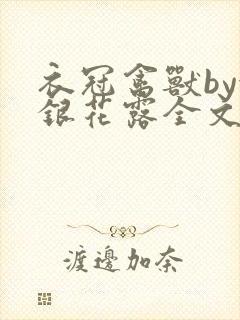 衣冠禽獸by
銀花露全文
渡邊加奈